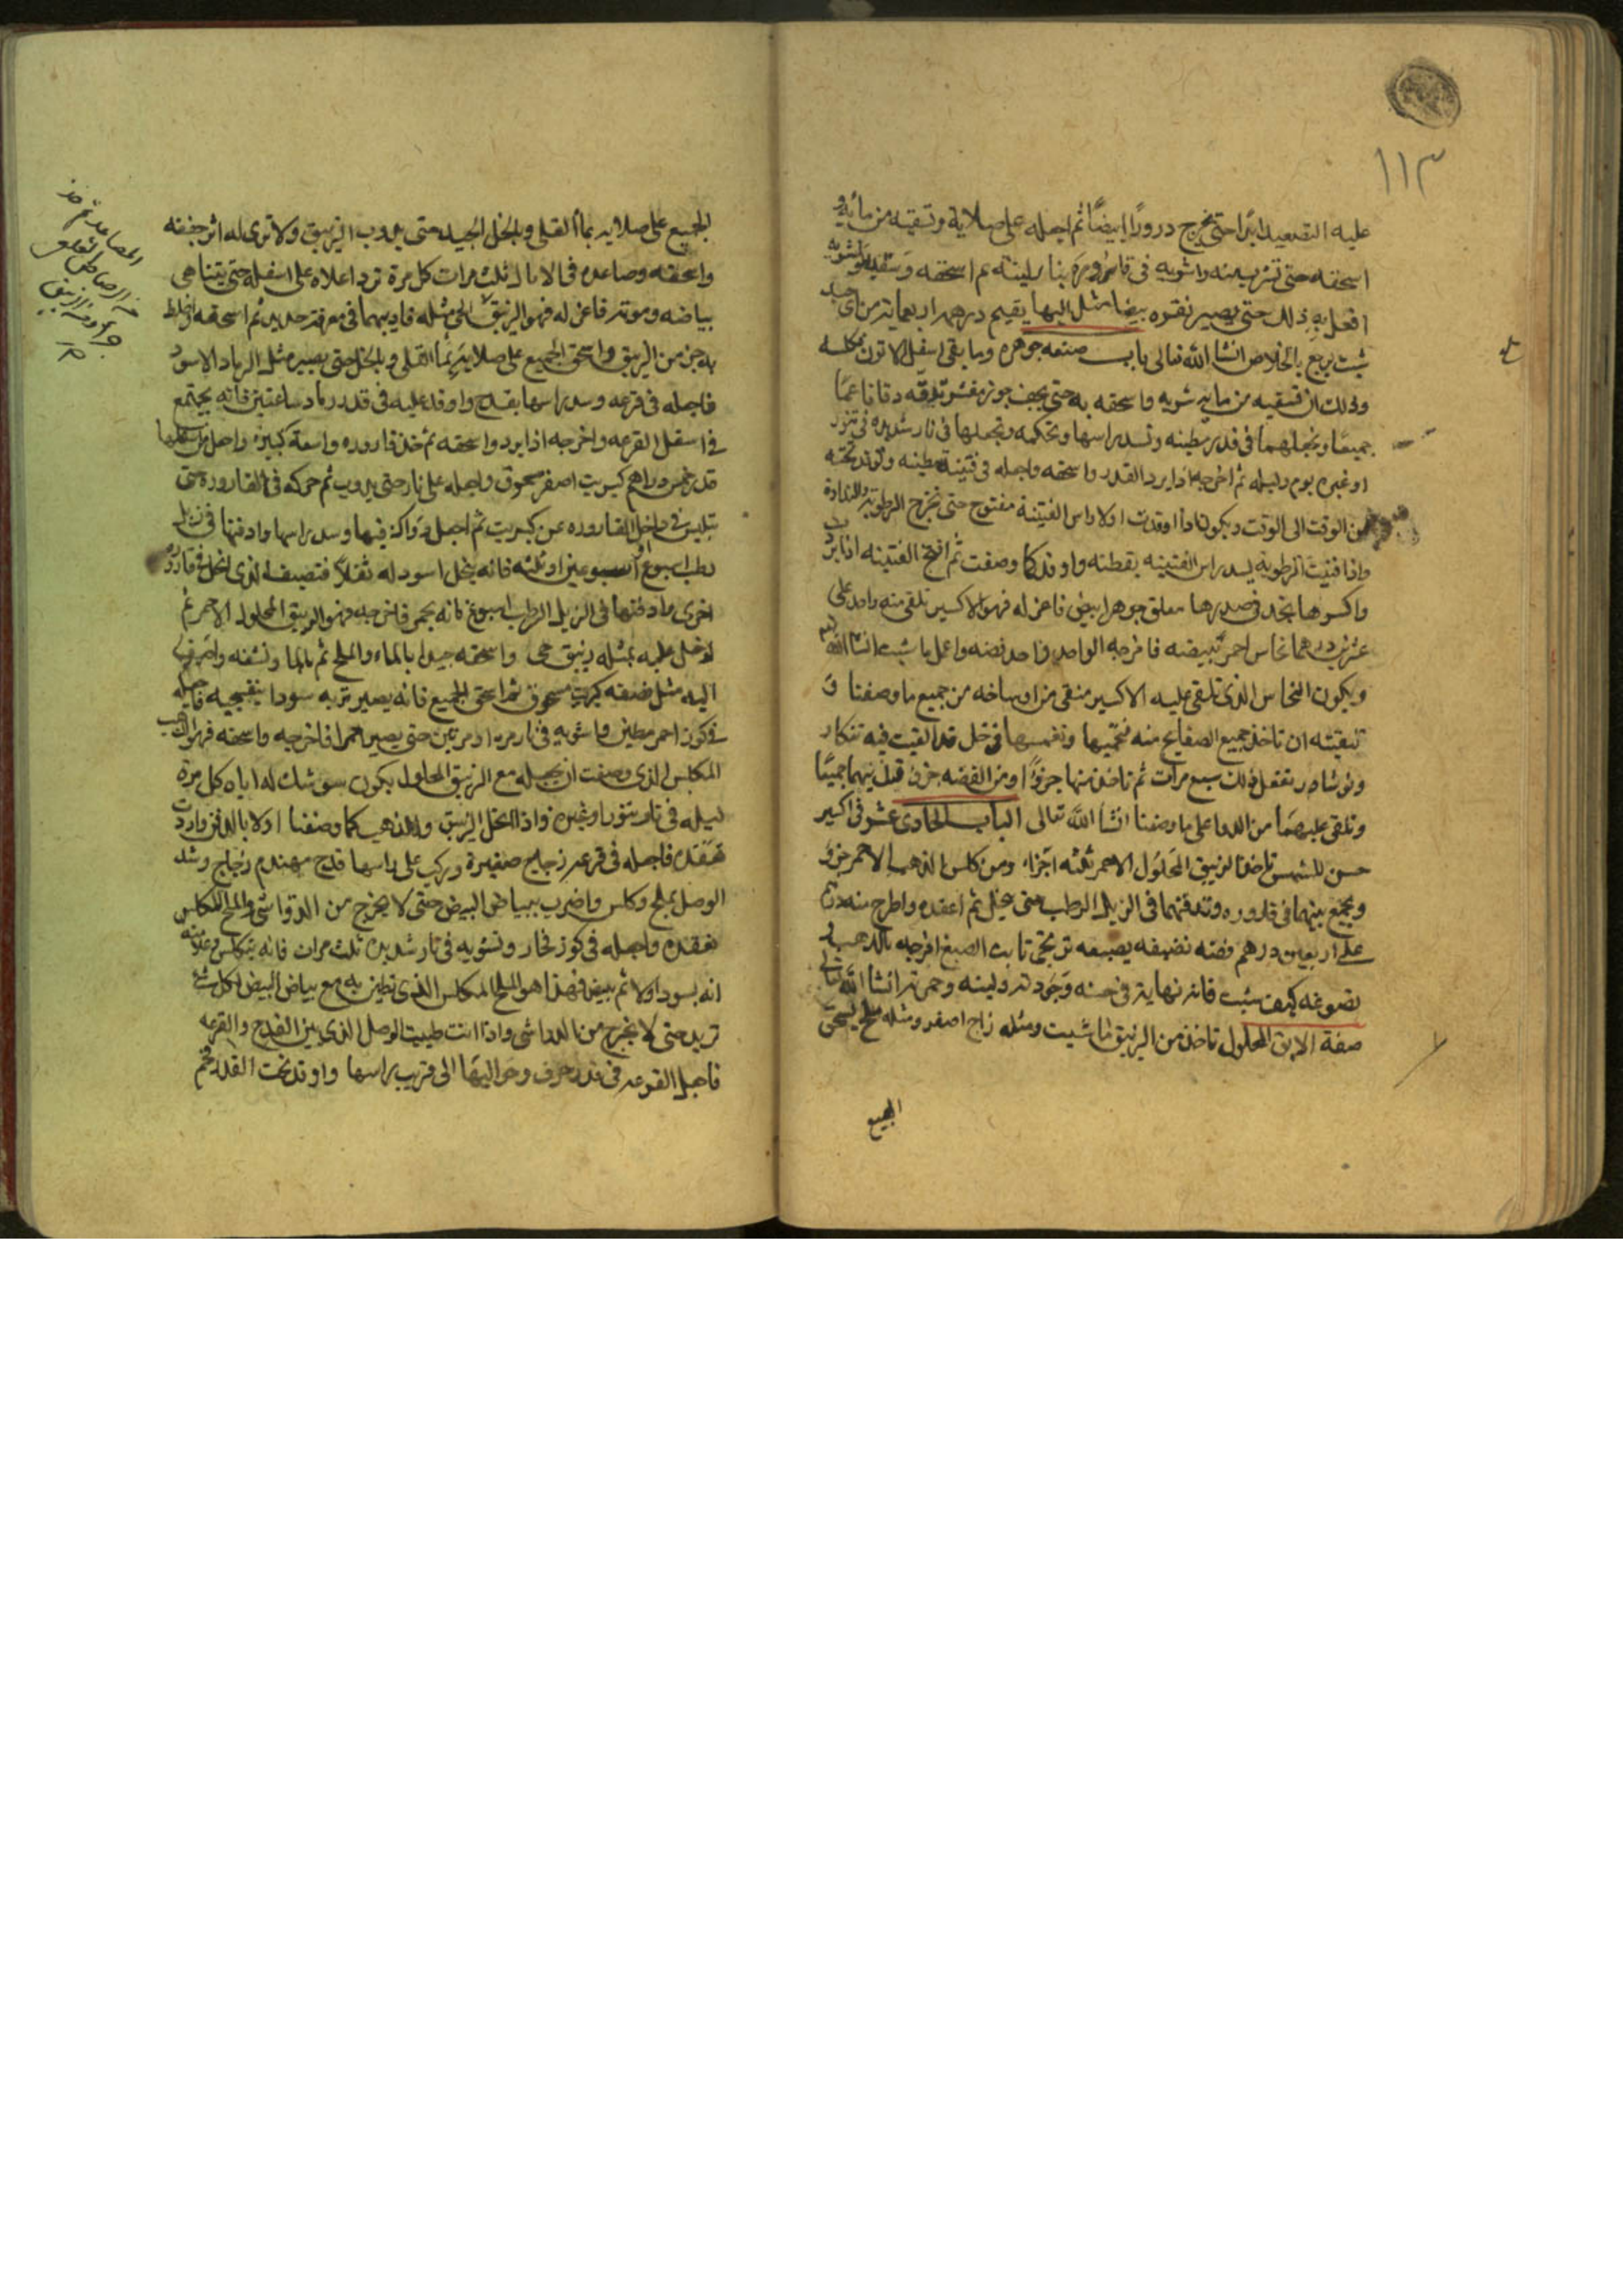 ١١٣
عليه التصعيد ابدا حتى يخرج درورًا ابيضًا ثم اجعله على صلاية وتسقيه من مائه و
اسحقه حتى تشربه منه واشويه في قارورة بنار لينه ثم اسحقه وسقيه واشويه
افعل به ذلك حتى يصير نقره بيضا مثل المها يقيم درهم اربعماية من اى جسد
شيت يرجع بالخلاص انشا الله تعالى باب صنعه جوهره وما بقى اسفل الاتون تكلسه
وذلك ان تسقيه من مايه تشويه واسحقه به حتى يجف جوز مقشر تدقه دقا ناعمًا
جميعًا وتجعلهما في قدر مطينه وتسد راسها وتحكمه وتجعلها في نار شديده في تنور
او غيره يوم وليله ثم اخرجه اذا برد القدر واسحقه واجعله في قنينة مطينه وتوقد تحته
من الوقت الى الوقت ويكون اذا اوقدت اولا راس القنينة مفتوح حتى تخرج الرطوبة والنداوة
واذا فنيت الرطوبه يسد راس القنينه بقطنه واوقد كما وصفت ثم افتح القنينه اذا برد
واكسرها تجد في صدرها معلق جوهر ابيض فاعزله فهو الاكسير تلقى منه واحد على
عشرين درهما نحاس احمر تبيضه فامزجه الواحد واحد فضه واعمل ما شيت انشا الله
ويكون النحاس الذى تلقى عليه الاكسير منقى من اوساخه من جميع ما وصفنا و
تنقيته ان تاخذ جميع الصفايح منه فتحميها وتغمسها في خل قد القيت فيه تنكار
ونوشادر تفعل ذلك سبع مرات ثم تاخذ منها جزوًا ومن الفضه جزى فتذيبهما جميعًا
وتلقى عليهما من الدوا على ما وصفنا انشا الله تعالى الباب الحادى عشر في اكسير
حسن للشمس تاخذ الزيبق المحلول الاحمر ثلثه اجزاء ومن كلس الذهب الاحمر جزى
ويجمع بينهما في قاروره وتدفنهما في الزبل الرطب حتى ينحل ثم اعقده واطرح منه درهم
على اربعين درهم فضه نضيفه يصبغه تربحى ثابت الصبغ امزجه بالذهب و
تصوغه كيف شيت فانه نهاية في حسنه وجودته ولينه وحمرته انشا الله تعالى
صفة الابق المحلول تاخذ من الزيبق ما شيت ومثله زاج اصفر ومثله ملح يسحق
الجميع
الجميع على صلايه بماء القلى والخل الجيد حتى يذوب الزيبق ولا ترى له اثر جففه
واسحقه وصاعده في الاثال ثلث مرات كل مرة ترد اعلاه على اسفله حتى يتناهى
بياضه وموته فاعزله فهو الزيبق الحى مثله فاذيبهما في مغرفة حديد ثم اسحقه واخلط
به جزى من الزيبق واسحق الجميع على صلاية بماء القلى وبالخل حتى يصير مثل الرماد الاسود
فاجعله في قرعه وسد راسها بقدح واوقد عليه في قدر رماد ساعتين فانه يجتمع
في اسفل القرعه واخرجه اذا برد واسحقه ثم خذ قاروره واسعة كبيره واجعل في اسفلها
قدر خمس دراهم كبريت اصفر مسحوق واجعله على نار حتى يذوب ثم حركه في القاروره حتى
تلبس في داخل القاروره من كبريت ثم اجعل دواك فيها وسد راسها وادفنها في زبل
رطب اسبوع او اسبوعين او ثلثه فانه ينحل اسود له ثقلا فتصيف الذى انحل في قارورة
اخرى وادفنها في الزبل الرطب اسبوع فانه يحمر فاخرجه وهو الزيبق المحلول الاحمر ثم
ادخل عليه بمثله زيبق حى واسحقه جيدا بالماء والملح ثم بالما وتنشفه واضف
اليه مثل نصفه كبريت مسحوق ثم اسحق الجميع فانه يصير تربه سودا بنفسجيه فاجعله
في كوز احمر مطين واشويه في نار مره او مرتين حتى يصير احمرا فاخرجه واسحقه فهو الذهب
المكلس الذى وصفت ان تجعله مع الزيبق المحلول يكون سوشك له اياه كل مرة
ليله في نار تنور او غيره واذا انحل الزيبق والذهب كما وصفنا اولا بالدفن واردت
تعقده فاجعله في قرعه زجاج صغيرة وركب على راسها قدح مهندم زجاج وشد
الوصل بملح وكلس واضرب ببياض البيض حتى لا يخرج من الدوا شى والملح المكلس
تعقده واجعله في كوز فخار وتشويه في نار شديده ثلث مرات فانه يتكلس وعلامته
انه يسود اولا ثم يبيض فهذا هو الملح المكلس الذى تطين به مع بياض البيض لكل شى
تريد حتى لا يخرج من الدوا شى واذا انت طينت الوصل الذى بين القدح والقرعه
فاجعل القرعه في قدر خزف وحواليها الى قريب راسها واوقد تحت القدر فحم
المصاعد ثم خذ
من الرصاص القلعى
جزأ ومن الزيبق